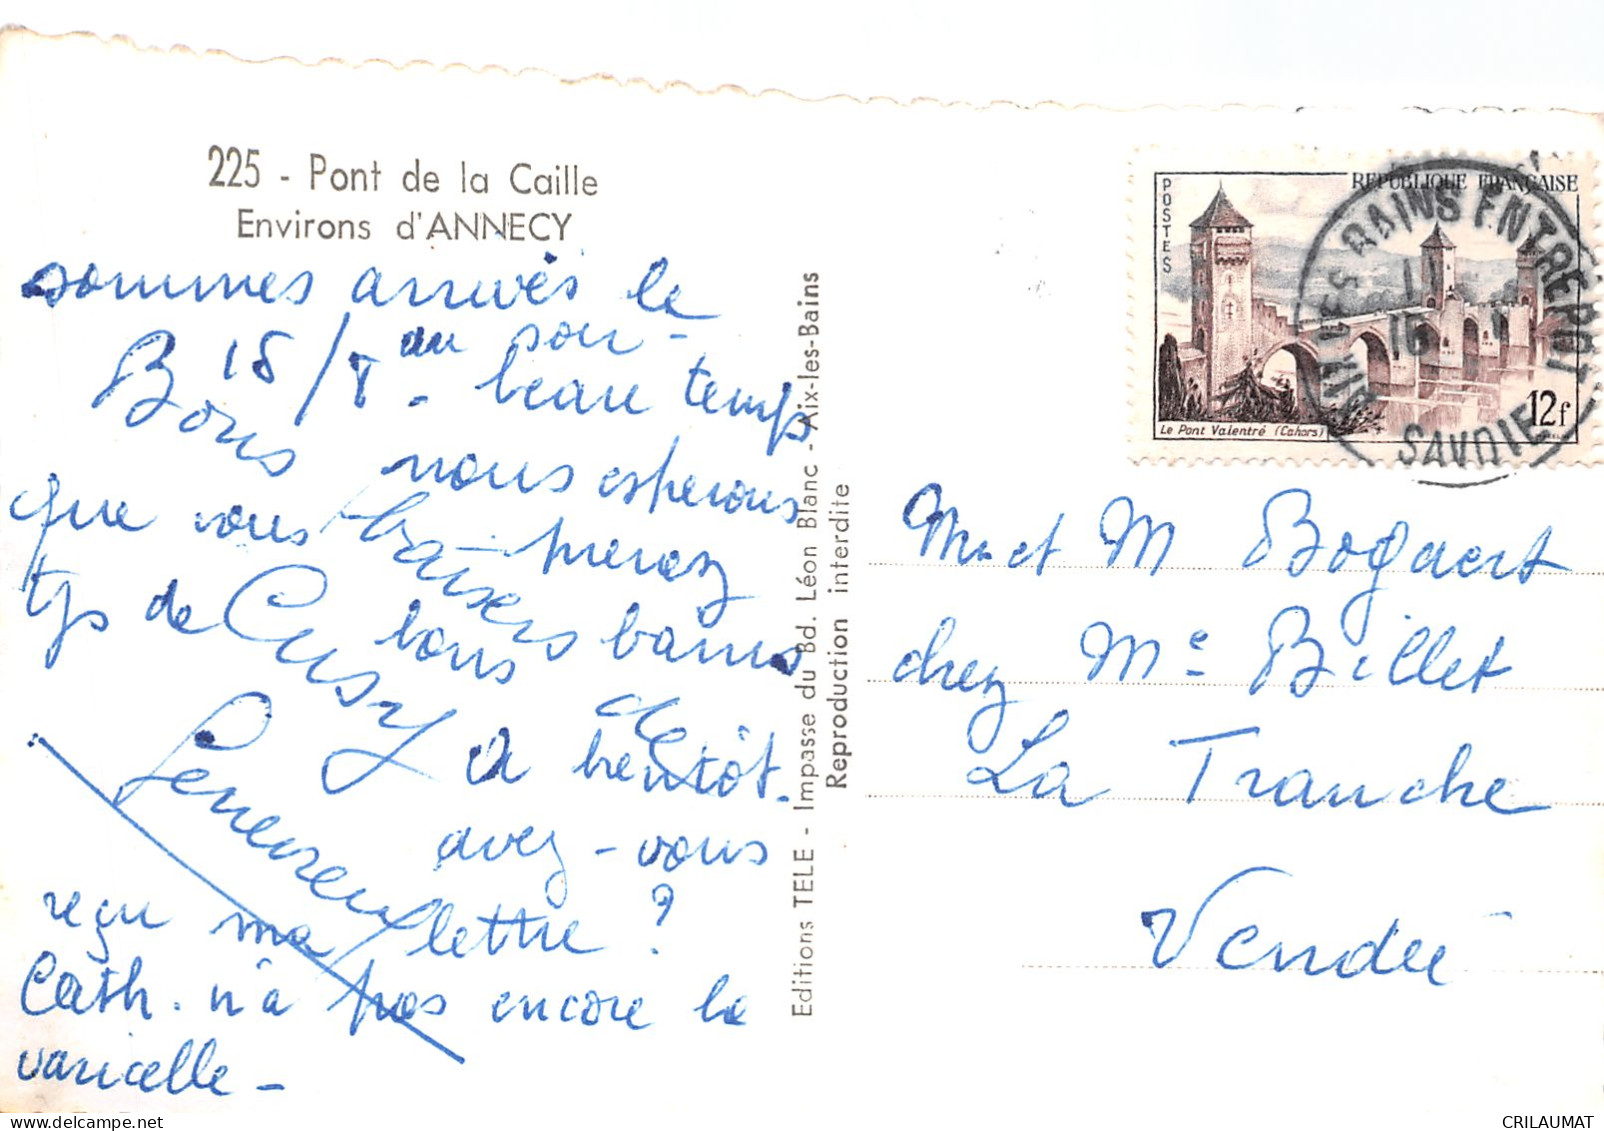 225 - Pont de la Caille
Environs d'ANNECY
sommes arrivés le
15/8 au soir -
Bons
- beau temps
nous esperons
que vous
baisers
prenez
tps de
Cusy
bons bains
de
Genevieve
A bientôt.
avez-vous
reçu ma lettre ?
Cath. n'a pas encore la
varicelle -
Editions TELE - Impasse du Bd. Léon Blanc - Aix-les-Bains
Reproduction interdite
POSTES
REPUBLIQUE FRANÇAISE
Le Pont Valentré (Cahors)
12f
AIX LES BAINS ENTREPOT
16
SAVOIE
Mr et M Bogaert
chez Me Billet
La Tranche
Vendée
CRILAUMAT